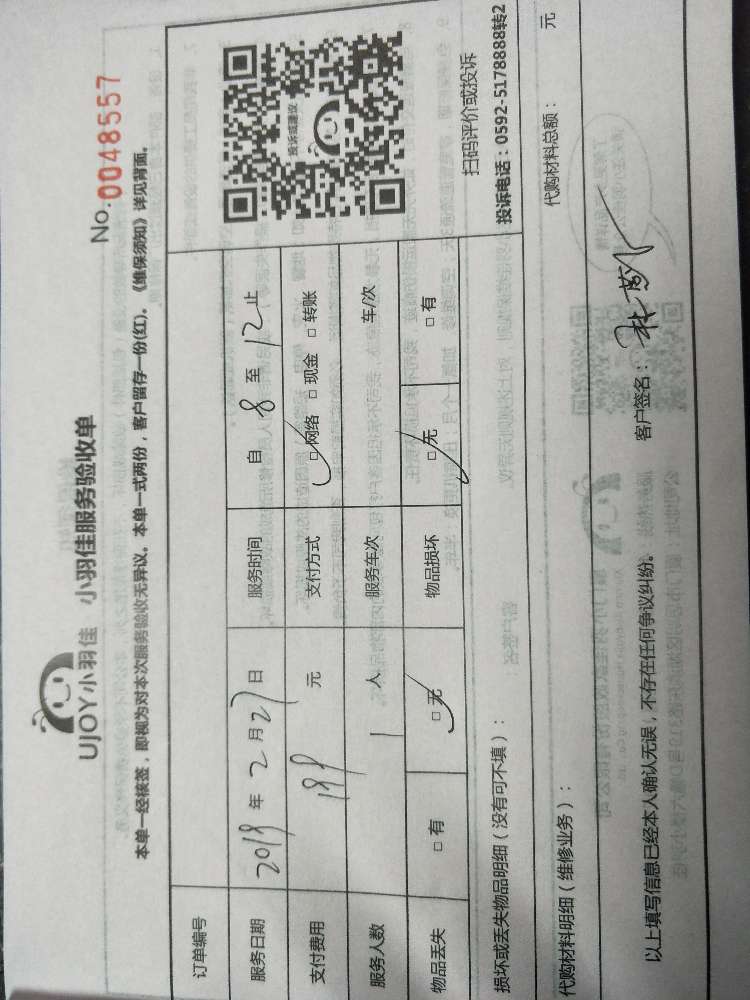 UJOY小羽佳 小羽佳服务验收单
No.0048557
本单一经核签，即视为对本次服务验收无异议。本单一式两份，客户留存一份(红)。《维保须知》详见背面。
订单编号
服务日期 2019 年 2 月 27 日 服务时间 自 8 至 12 止
支付费用 199 元 支付方式 □网络 □现金 □转账
服务人数 1 人 服务车次 车/次
物品丢失 □有 □无 物品损坏 □无 □有
投诉或建议
扫码评价或投诉
投诉电话：0592-5178888转2
损坏或丢失物品明细（没有可不填）：
代购材料明细（维修业务）： 代购材料总额： 元
以上填写信息已经本人确认无误，不存在任何争议纠纷。 客户签名：